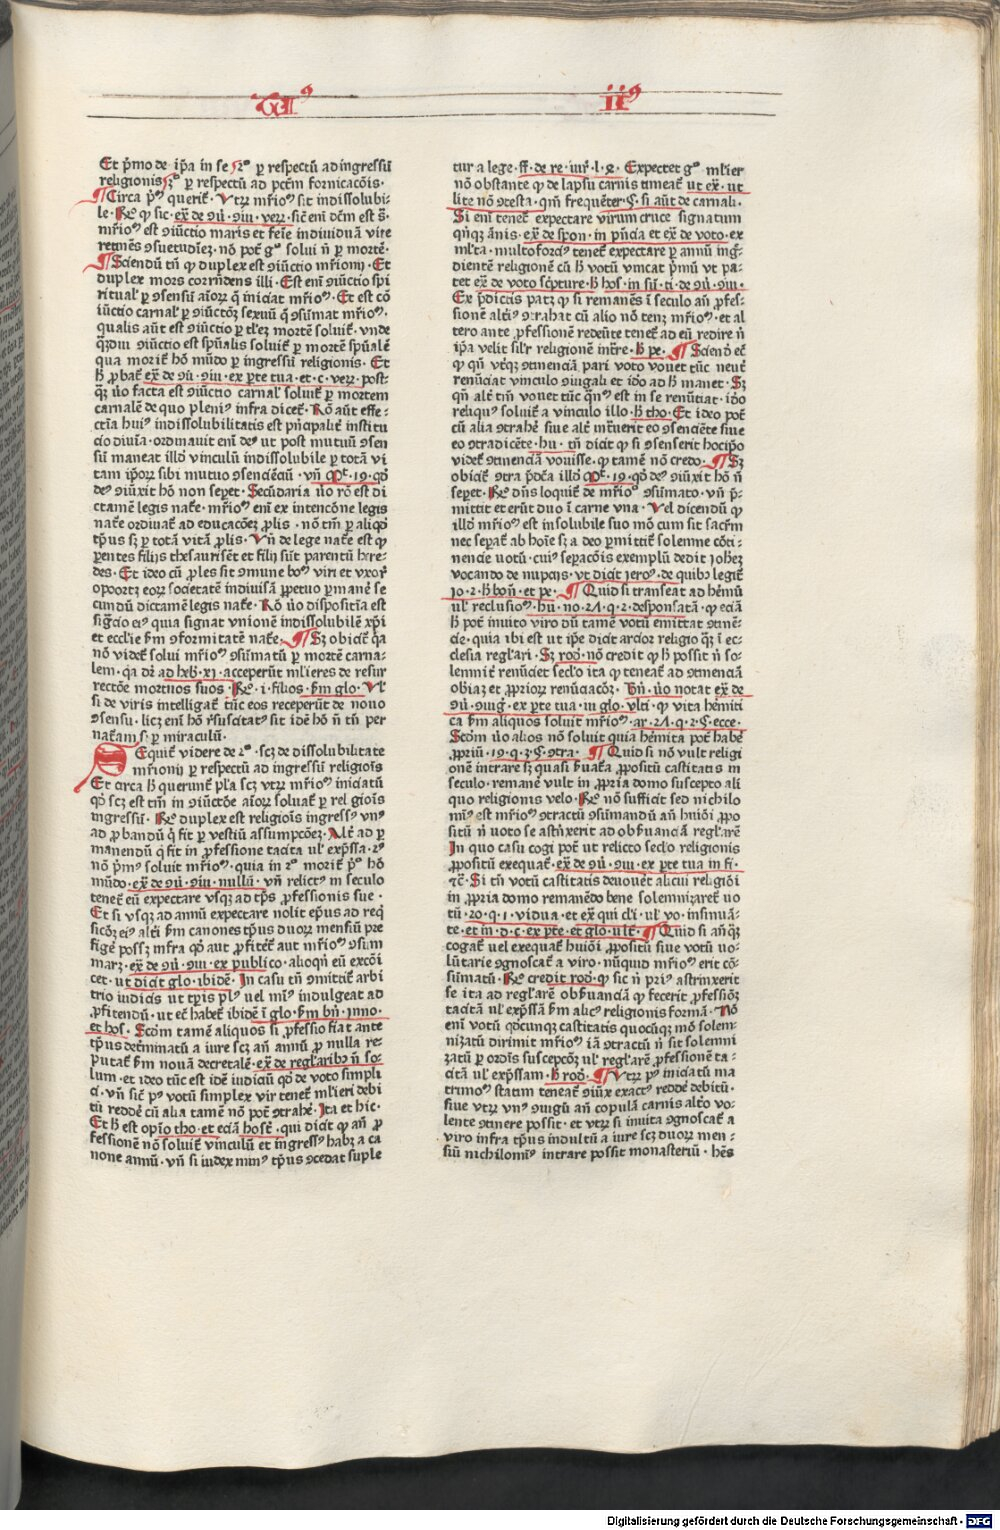 Et p̄mo de ip̄a in se 2º ꝑ respectū ad ingressū
religionis 3º ꝑ respectū ad pctm̄ fornicacōis·
¶Circa pᵐ querit̄· Vtꝝ mr̄ioᵐ sit indissolubi-
le· Rº ꝙ sic· ex̄ de ꝯū· ꝯiu· veꝝ· sic̄ eni dc̄m est s̄·
mr̄ioᵐ est ꝯiūctio maris et feīe indiuiduā vite
retinēs ꝯsuetudiēz· nō pōt gº solui n̄ ꝑ mortē·
¶Sciendū tn̄ ꝙ duplex est ꝯiūctio mr̄ionij· Et
duplex mors corrn̄dens illi· Est eni ꝯiūctio spi
ritual' ꝑ ꝯsensū aīoꝝ q̄ iniciat mr̄ioᵐ· Et est cō
iūctio carnal' ꝑ ꝯiūctōꝫ sexuū q̄ ꝯsūmat mr̄ioᵐ·
qualis aūt est ꝯiūctio ꝑ tlez mortē soluit̄· vnde
q̄ꝫdiu ꝯiūctio est spūalis soluit̄ ꝑ mortē spūalē
qua morit̄ hō mūdo ꝑ ingressū religionis· Et
h̄ ꝓbat̄ ex̄ de ꝯū· ꝯiu· ex ꝑte tua· et·c· veꝝ· post-
q̄ꝫ ūo facta est ꝯiūctio carnal' soluit̄ ꝑ mortem
carnalē de quo pleniꝰ infra dicet̄· Rō aūt effe-
ctīa huiꝰ indissolubilitatis est pn̄cipalit̄ institu
cio diuīa· ordinauit eni deꝰ ut post mutuū ꝯsen
sū maneat illd̄ vinculū indissolubile ꝑ totā vi
tam ip̄oꝝ sibi mutuo ꝯsenciēciū· vn̄ Mᵗ· 19· qḋ
deꝰ ꝯiūxit hō non seꝑet· Secūdaria ūo rō est di
ctamē legis nat̄e· mr̄ioᵐ eni ex intencōne legis
nat̄e ordinat̄ ad educacōez ꝓlis· nō tm̄ ꝑ aliqḋ
tp̄us sꝫ ꝑ totā vitā ꝓlis· Vn̄ de lege nat̄e est ꝙ
ꝑentes filijs thesaurisēt et filij sūt parentū here-
des· Et ideo cū ꝓles sit ꝯmune boᵐ viri et vxoꝝ
oportꝫ eoꝝ societatē indiuisā ꝑpetuo ꝑmanē se
cundū dictamē legis nat̄e· Rō ūo dispositīa est
sigᵒcio eiꝰ quia signat vnionē indissolubilē xp̄i
et eccl'ie ẜm ꝯformitatē nat̄e· ¶Sꝫ obicit̄ q̇a
nō videt̄ solui mr̄ioᵐ ꝯsūmatū ꝑ mortē carna-
lem· q̇a dr̄ ad heb· xi· acceperūt ml'ieres de resur
rectōe mortuos suos· Rº· i· filios· ẜm glo· Vl'
si de viris intelligat̄ tūc eos receperūt de nouo
ꝯsensu· licꝫ eni hō r̄suscitatꝰ sit idē hō n̄ tn̄ per
nat̄am sꝫ ꝑ miraculū·
Sequit̄ videre de 2º· scꝫ de dissolubilitate
mr̄ionij ꝑ respectū ad ingressū religiōis
Et circa h̄ querunt̄ pl'a scꝫ vtꝝ mr̄ioᵐ iniciatū
qḋ scꝫ est tm̄ in ꝯiūctōe aīoꝝ soluat̄ ꝑ religiōis
ingressū· Rº duplex est religiōis ingressꝰ vnꝰ
ad ꝓbandū q̇ fit ꝑ vestiū assumpcōez· Altꝰ ad ꝑ
manendū q̇ fit in ꝓfessione tacita ul' exp̄ssa· 1ꝰ
nō p̄mꝰ soluit mr̄ioᵐ· quia in 2º morit̄ pº hō
mūdo· ex̄ de ꝯū· ꝯiu· nullū· vn̄ relictꝰ in seculo
tenet̄ eū expectare vsqꝫ ad tp̄s ꝓfessionis sue·
Et si vsqꝫ ad annū expectare nolit ep̄us ad reqͥ
sicōꝫ eiꝰ altiꝰ ẜm canones tp̄us duoꝝ mensiū pre
figē possꝫ infra qḋ aut ꝓfitet̄ aut mr̄ioᵐ ꝯsum
marꝫ· ex̄ de ꝯū· ꝯiu· ex publico· alioqn̄ eū excōi
cet· ut dicit glo· ibidē· In casu tn̄ ꝯmittit̄ arbi
trio iudicis ut tp̄is plꝰ vel mīꝰ indulgeat ad
ꝓfitendū· ut ec̄ habet̄ ibidē ī glo· ẜm bn̄· ynno·
et hos· Scdm̄ tamē aliquos si ꝓfessio fiat ante
tp̄us determinatū a iure scꝫ an̄ annū ꝓ nulla re-
putat̄ ẜm nouā decretalē· ex̄ de regl'aribꝰ n̄ so-
lum· et ideo tūc est idē iudiciū qḋ de voto simpli
ci· vn̄ sic̄ pꝰ votū simplex vir tenet̄ ml'ieri debi
tū reddē cū alia tamē nō pōt ꝯtrahē· Ita et hic·
Et h̄ est opīo tho· et eciā host̄· qui dicit ꝙ an̄ ꝓ
fessionē nō soluit̄ vinculū et ingressꝰ habꝫ a ca
none annū· vn̄ si iudex minꝰ tp̄us ꝯcedat suple
tur a lege· ff· de re· iur̄· l· 2· Expectet gº ml'ier
nō obstante ꝙ de lapsu carnis timeat̄ ut ex̄· ut
lite nō ꝯtesta· qm̄ frequēter· §· si aūt de carnali·
Si eni tenet̄ expectare virum cruce signatum
qn̄qꝫ ānis· ex̄ de spon· in pn̄cia et ex̄ de voto· ex
ml'ta· multoforciꝰ tenet̄ expectare ꝑ annū ing̊-
dientē religionē cū h̄ votū vincat p̄mū vt pa-
tet ex̄ de voto sc̄pture· h̄ hos· in sū· ti· de ꝯū· ꝯiu·
Ex p̄dictis patꝫ ꝙ si remanēs ī seculo an̄ ꝓfes-
sionē altiꝰ ꝯtrahat cū alio nō tenꝫ mr̄ioᵐ· et al
tero ante ꝓfessionē redeūte tenet̄ ad eū redire n̄
ip̄a velit sil'r religionē int̄re· h̄ pe· ¶Sciend̄ ec̄
ꝙ qn̄ vtqꝫ ꝯtinenciā pari voto vouet tūc neut̄
renūciat vinculo ꝯiugali et id̄o ad h̄ manet· Sꝫ
qn̄ alt̄ tm̄ vouet tūc q̄nᵐ est in se renūtiat· id̄o
reliquꝰ soluit̄ a vinculo illo· h̄ tho· Et ideo pōt
cū alia ꝯtrahē siue alt̄ int̄uerit eo ꝯsenciēte siue
eo ꝯtradicēte· hu· tn̄ dicit ꝙ si ꝯsenserit hoc ip̄o
videt̄ ꝯtinenciā vouisse· ꝙ tamē nō credo· ¶Sꝫ
obicit̄ ꝯtra p̄dc̄a illd̄ Mᵗ· 19· qḋ deꝰ ꝯiūxit hō n̄
seꝑet· Rº dn̄s loquit̄ de mr̄ioº ꝯsūmato· vn̄ p̄-
mittit et erūt duo ī carne vna· Vel dicendū ꝙ
illd̄ mr̄ioᵐ est insolubile suo mō cum sit sacr̄m
nec seꝑat̄ ab hoīe sꝫ a deo ꝑmittit̄ solemne cōti-
nencie uotū· cuiꝰ seꝑacōis exemplū dedit ioheꝫ
vocando de nupcijs· vt dicit ieroꝰ· de quibꝰ legit̄
io· 2· h̄ bon̄· et pe· ¶Quid si transeat ad hēmū
ul' reclusioᵐ· hu· no· 27· q· 2· desponsatā· ꝙ eciā
h̄ pōt inuito viro dū tamē votū emittat ꝯtinē-
cie· quia ibi est ut ip̄e dicit arcior religio q̄ꝫ ī ec-
clesia regl'ari· Sꝫ rod̄· nō credit ꝙ h̄ possit n̄ so-
lemnit̄ renūciet secl'o ita ꝙ teneat̄ ad ꝯtinenciā
obiaꝫ et ꝓprioꝝ renūciacōꝫ· Bn̄· ūo notat ex̄ de
ꝯū· ꝯiug̊· ex ꝑte tua· in glo· vlti· ꝙ vita hēmiti
ca ẜm aliquos soluit mr̄ioᵐ· ar· 27· q· 2· §· ecce·
Scdm̄ ūo alios nō soluit quia hēmita pōt habē
ꝓpriū· 19· q· 3· §· ꝯtra· ¶Quid si nō vult religi
onē intrare sꝫ quasi ẜuat̄a ꝓpositū castitatis in
seculo· remanē vult in ꝓpria domo suscepto ali
quo religionis velo· Rº nō sufficit sed nichilo
minꝰ est mr̄ioᵐ ꝯtractū ꝯsūmandū an̄ huiōi ꝓpo
sitū n̄ uoto se astn̄xerit ad obẜuanciā regl'arē
In quo casu cogi pōt ut relicto secl'o religionis
ꝓpositū exequat̄· ex̄ de ꝯū· ꝯiu· ex ꝑte tua in fi·
⁊c̄· Si tn̄ votū castitatis deuouēt alicui religiōi
in ꝓpria domo remanēdo bene solemnizaret̄ uo
tū· 20· q· 1· vidua· et ex̄ qui cl'i· ul' vo· insinuā-
te· et in· d· c· ex ꝑte· et glo· ult̄· ¶Quid si an̄qꝫ
cogat̄ uel exequat̄ huiōi ꝓpositū siue votū uo-
lūtarie ꝯgnoscat̄ a viro· nūquid mr̄ioᵐ erit cō-
sūmatū· Rº credit rod̄· ꝙ sic n̄ priꝰ astrinxerit
se ita ad regl'arē obẜuanciā ꝙ fecerit ꝓfessiōꝫ
tacitā ul' exp̄ssā ẜm alicꝰ religionis formā· Nō
eni votū qḋcunqꝫ castitatis quocūqꝫ mō solem-
nizatū dirimit mr̄ioᵐ iā ꝯtractū n̄ sit solemni
zatū ꝑ ordīs suscepcōꝫ ul' regl'arē ꝓfessionē ta-
citā ul' exp̄ssam· h̄ rod̄· ¶Vtꝝ pꝰ iniciatū ma
trimoᵐ statim teneat̄ ꝯiūx exactꝰ reddē debitū·
siue vtꝝ vnꝰ ꝯiugū an̄ copulā carnis altꝰo vo-
lente ꝯtinere possit· et vtꝝ si inuita ꝯgnoscat̄ a
viro infra tp̄us indultū a iure scꝫ duoꝝ men-
siū nichilominꝰ intrare possit monasteriū· hēs
Digitalisierung gefördert durch die Deutsche Forschungsgemeinschaft - DFG